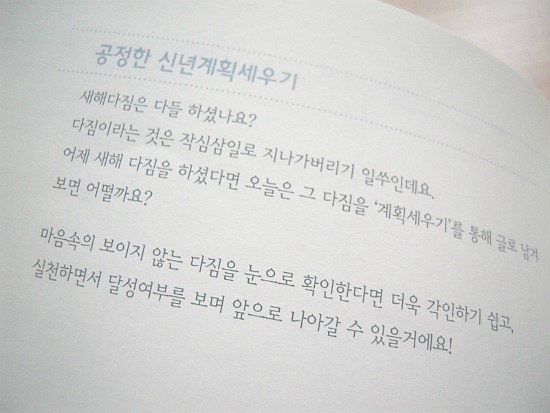 공정한 신년계획세우기
새해다짐은 다들 하셨나요?
다짐이라는 것은 작심삼일로 지나가버리기 일쑤인데요.
어제 새해 다짐을 하셨다면 오늘은 그 다짐을 '계획세우기'를 통해 글로 남겨
보면 어떨까요?
마음속의 보이지 않는 다짐을 눈으로 확인한다면 더욱 각인하기 쉽고,
실천하면서 달성여부를 보며 앞으로 나아갈 수 있을거에요!